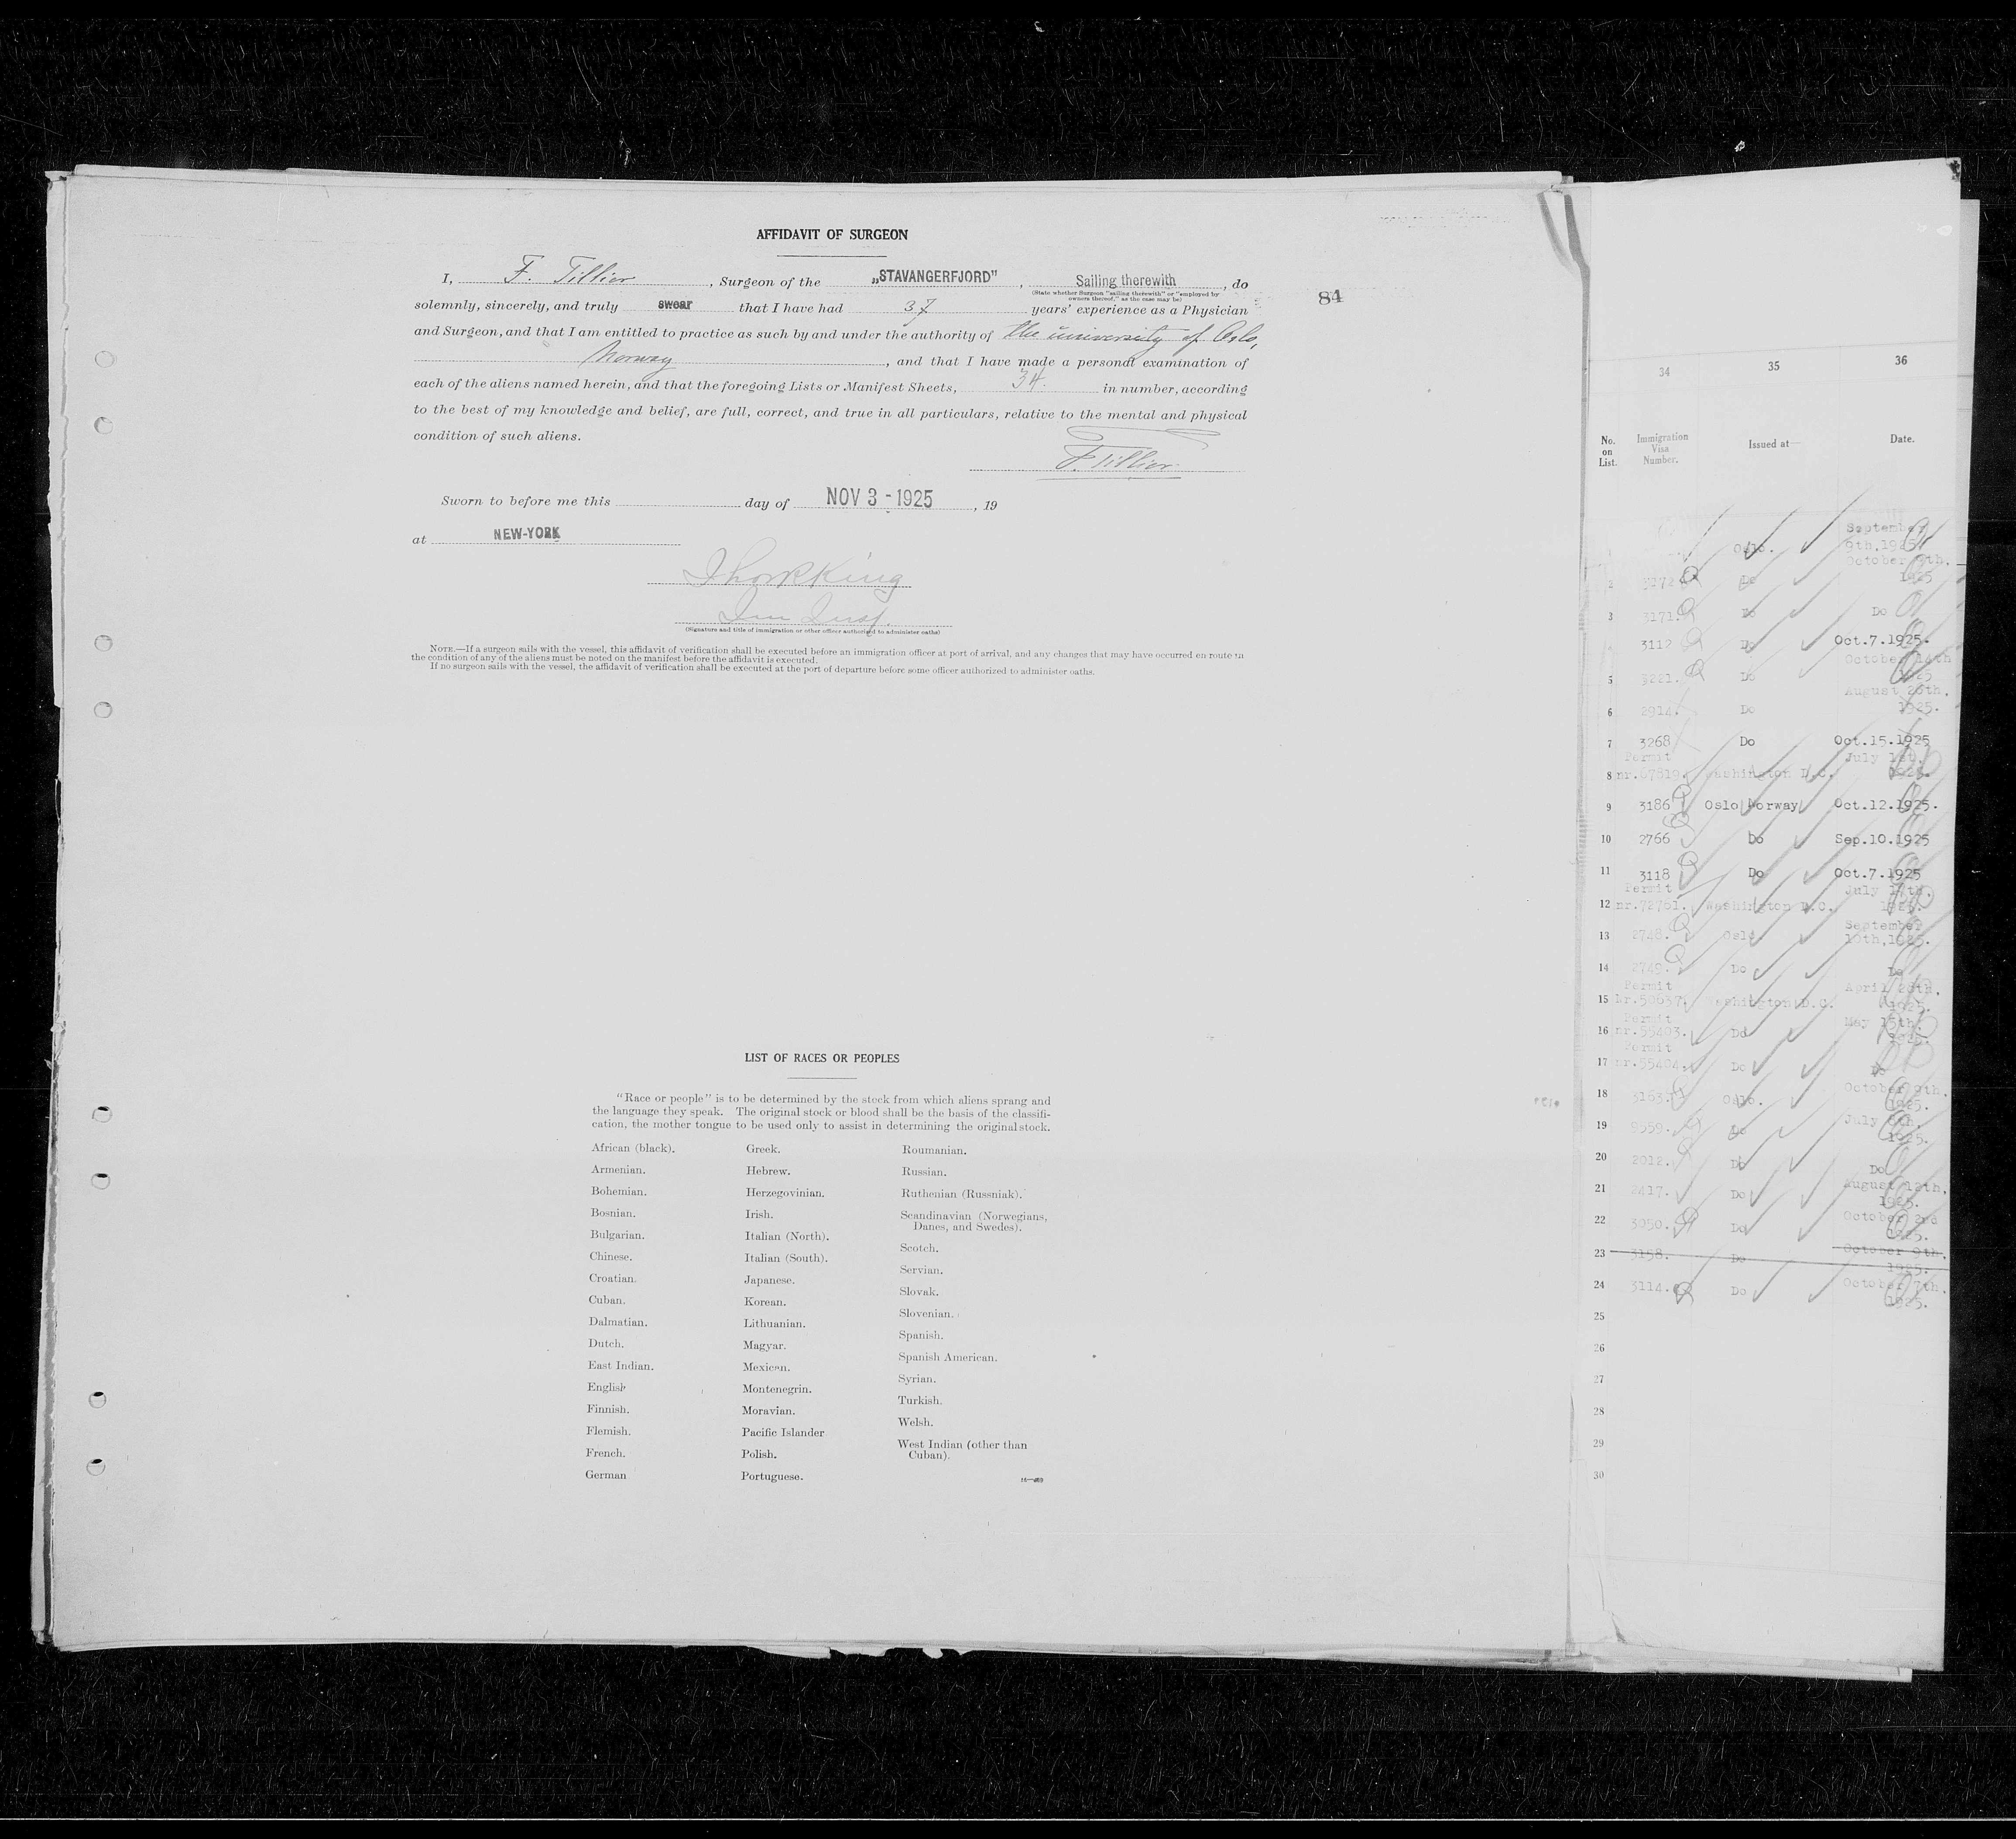 AFFIDAVIT OF SURGEON
I, F. Tillier, Surgeon of the „STAVANGERFJORD", Sailing therewith, do
(State whether Surgeon "sailing therewith" or "employed by
owners thereof," as the case may be)
84
solemnly, sincerely, and truly swear that I have had 37 years' experience as a Physician
and Surgeon, and that I am entitled to practice as such by and under the authority of the university of Oslo,
Norway, and that I have made a personal examination of
each of the aliens named herein, and that the foregoing Lists or Manifest Sheets, 34. in number, according
to the best of my knowledge and belief, are full, correct, and true in all particulars, relative to the mental and physical
condition of such aliens.
F. Tillier.
Sworn to before me this day of NOV 3 - 1925, 19
at NEW-YORK
Imm Insp.
(Signature and title of immigration or other officer authorized to administer oaths)
NOTE.—If a surgeon sails with the vessel, this affidavit of verification shall be executed before an immigration officer at port of arrival, and any changes that may have occurred en route in
the condition of any of the aliens must be noted on the manifest before the affidavit is executed.
If no surgeon sails with the vessel, the affidavit of verification shall be executed at the port of departure before some officer authorized to administer oaths.
LIST OF RACES OR PEOPLES
"Race or people" is to be determined by the stock from which aliens sprang and
the language they speak. The original stock or blood shall be the basis of the classifi-
cation, the mother tongue to be used only to assist in determining the original stock.
African (black).
Armenian.
Bohemian.
Bosnian.
Bulgarian.
Chinese.
Croatian.
Cuban.
Dalmatian.
Dutch.
East Indian.
English
Finnish.
Flemish.
French.
German
Greek.
Hebrew.
Herzegovinian.
Irish.
Italian (North).
Italian (South).
Japanese.
Korean.
Lithuanian.
Magyar.
Mexican.
Montenegrin.
Moravian.
Pacific Islander
Polish.
Portuguese.
Roumanian.
Russian.
Ruthenian (Russniak).
Scandinavian (Norwegians,
Danes, and Swedes).
Scotch.
Servian.
Slovak.
Slovenian.
Spanish.
Spanish American.
Syrian.
Turkish.
Welsh.
West Indian (other than
Cuban).
34 35 36
No. on List. Immigration Visa Number. Issued at— Date.
Oslo. September 9th, 1925.
2 Do October 9th, 1925
3 3171. Do Do
3112 Do Oct.7.1925.
5 Do October 14th 1925
6 2914. Do August 26th, 1925.
7 3268 Do Oct.15.1925
8 Permit nr.67819. Washington D.C. July 1st, 1925.
9 3186 Oslo Norway Oct.12.1925.
10 2766 Do Sep.10.1925
11 3118 Do Oct.7.1925
12 Permit nr.72761. Washington D.C. July 1925.
13 2748. Oslo September 10th, 1925.
14 2749. Do Do
15 Permit Nr.50637. Washington D.C. April 1925.
16 Permit nr.55403. Do May 15th, 1925.
17 Permit nr.55404. Do Do
18 3163. Oslo. October 9th, 1925.
19 9559. Do July 1925.
20 2012. Do Do
21 2417. Do August 12th, 1925.
22 3050. Do October 2nd 1925.
23 3158. Do October 9th. 1925.
24 3114. Do October 7th. 1925.
25
26
27
28
29
30